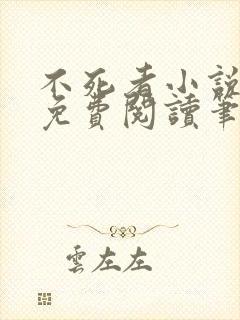 不死者小說
免費閱讀筆
雲左左